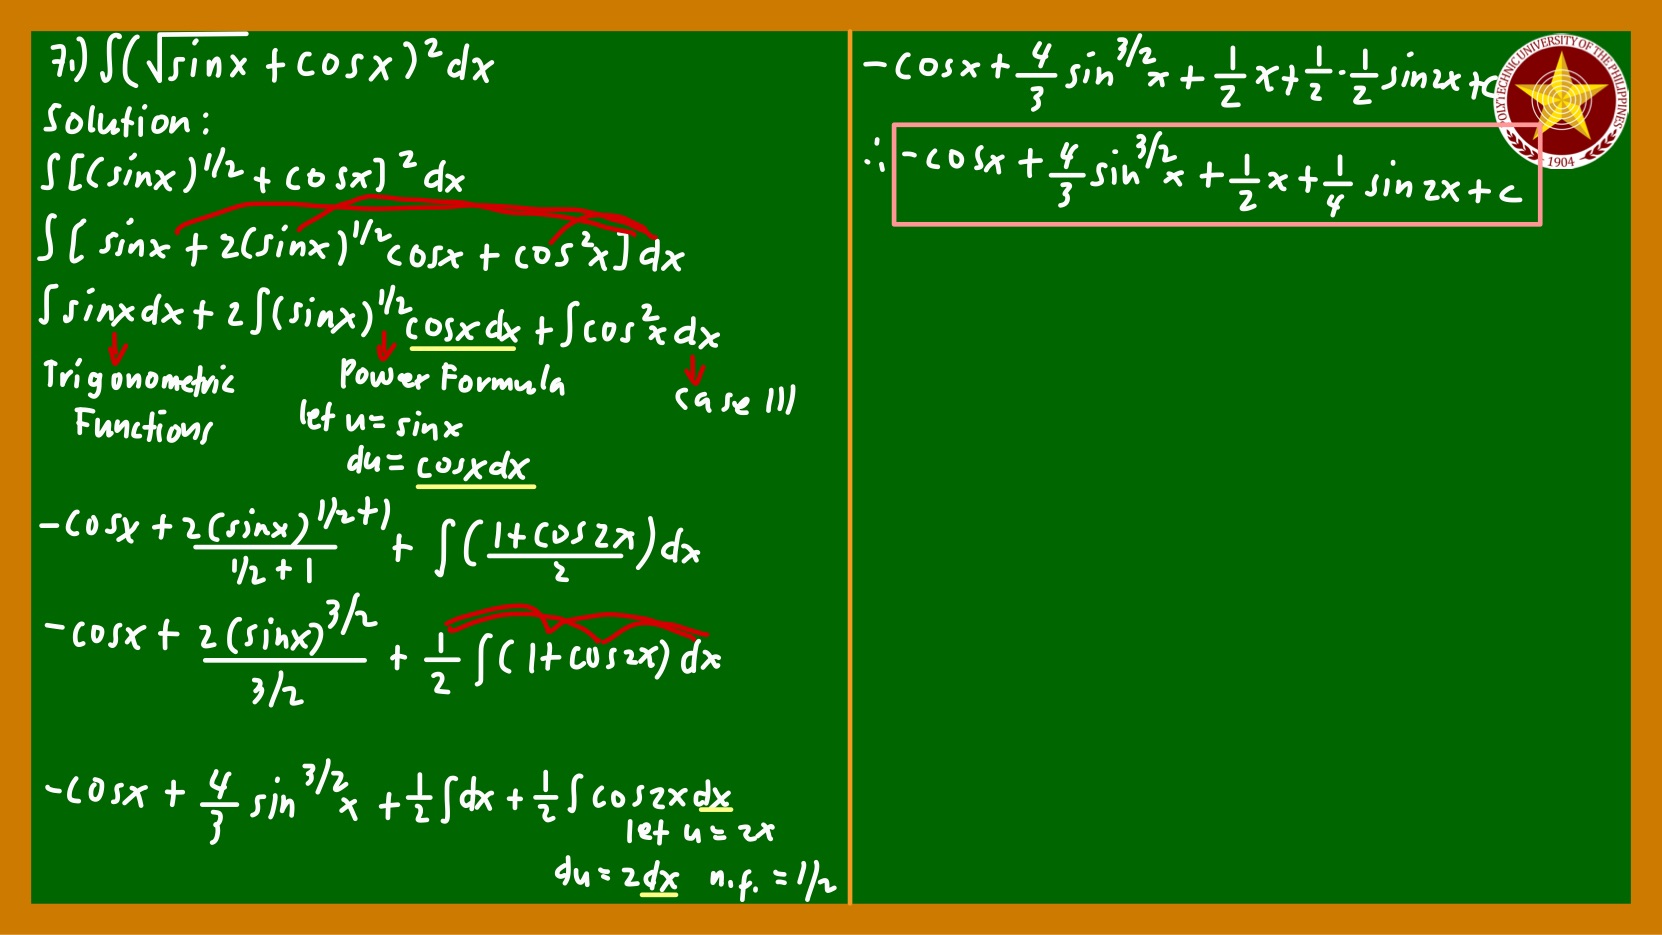 7.) ∫(√sinx + cosx)²dx
Solution:
∫[(sinx)^1/2 + cosx]²dx
∫[sinx + 2(sinx)^1/2 cosx + cos²x]dx
∫sinxdx + 2∫(sinx)^1/2 cosxdx + ∫cos²xdx
Trigonometric Functions
Power Formula
let u = sinx
du = cosxdx
case III
-cosx + 2(sinx)^1/2+1 / 1/2 + 1 + ∫(1+cos2x / 2)dx
-cosx + 2(sinx)^3/2 / 3/2 + 1/2 ∫(1+cos2x)dx
-cosx + 4/3 sin^3/2 x + 1/2 ∫dx + 1/2 ∫cos2xdx
let u = 2x
du = 2dx n.f. = 1/2
-cosx + 4/3 sin^3/2 x + 1/2 x + 1/2 · 1/2 sin2x + c
∴ -cosx + 4/3 sin^3/2 x + 1/2 x + 1/4 sin2x + c
POLYTECHNIC UNIVERSITY OF THE PHILIPPINES
1904